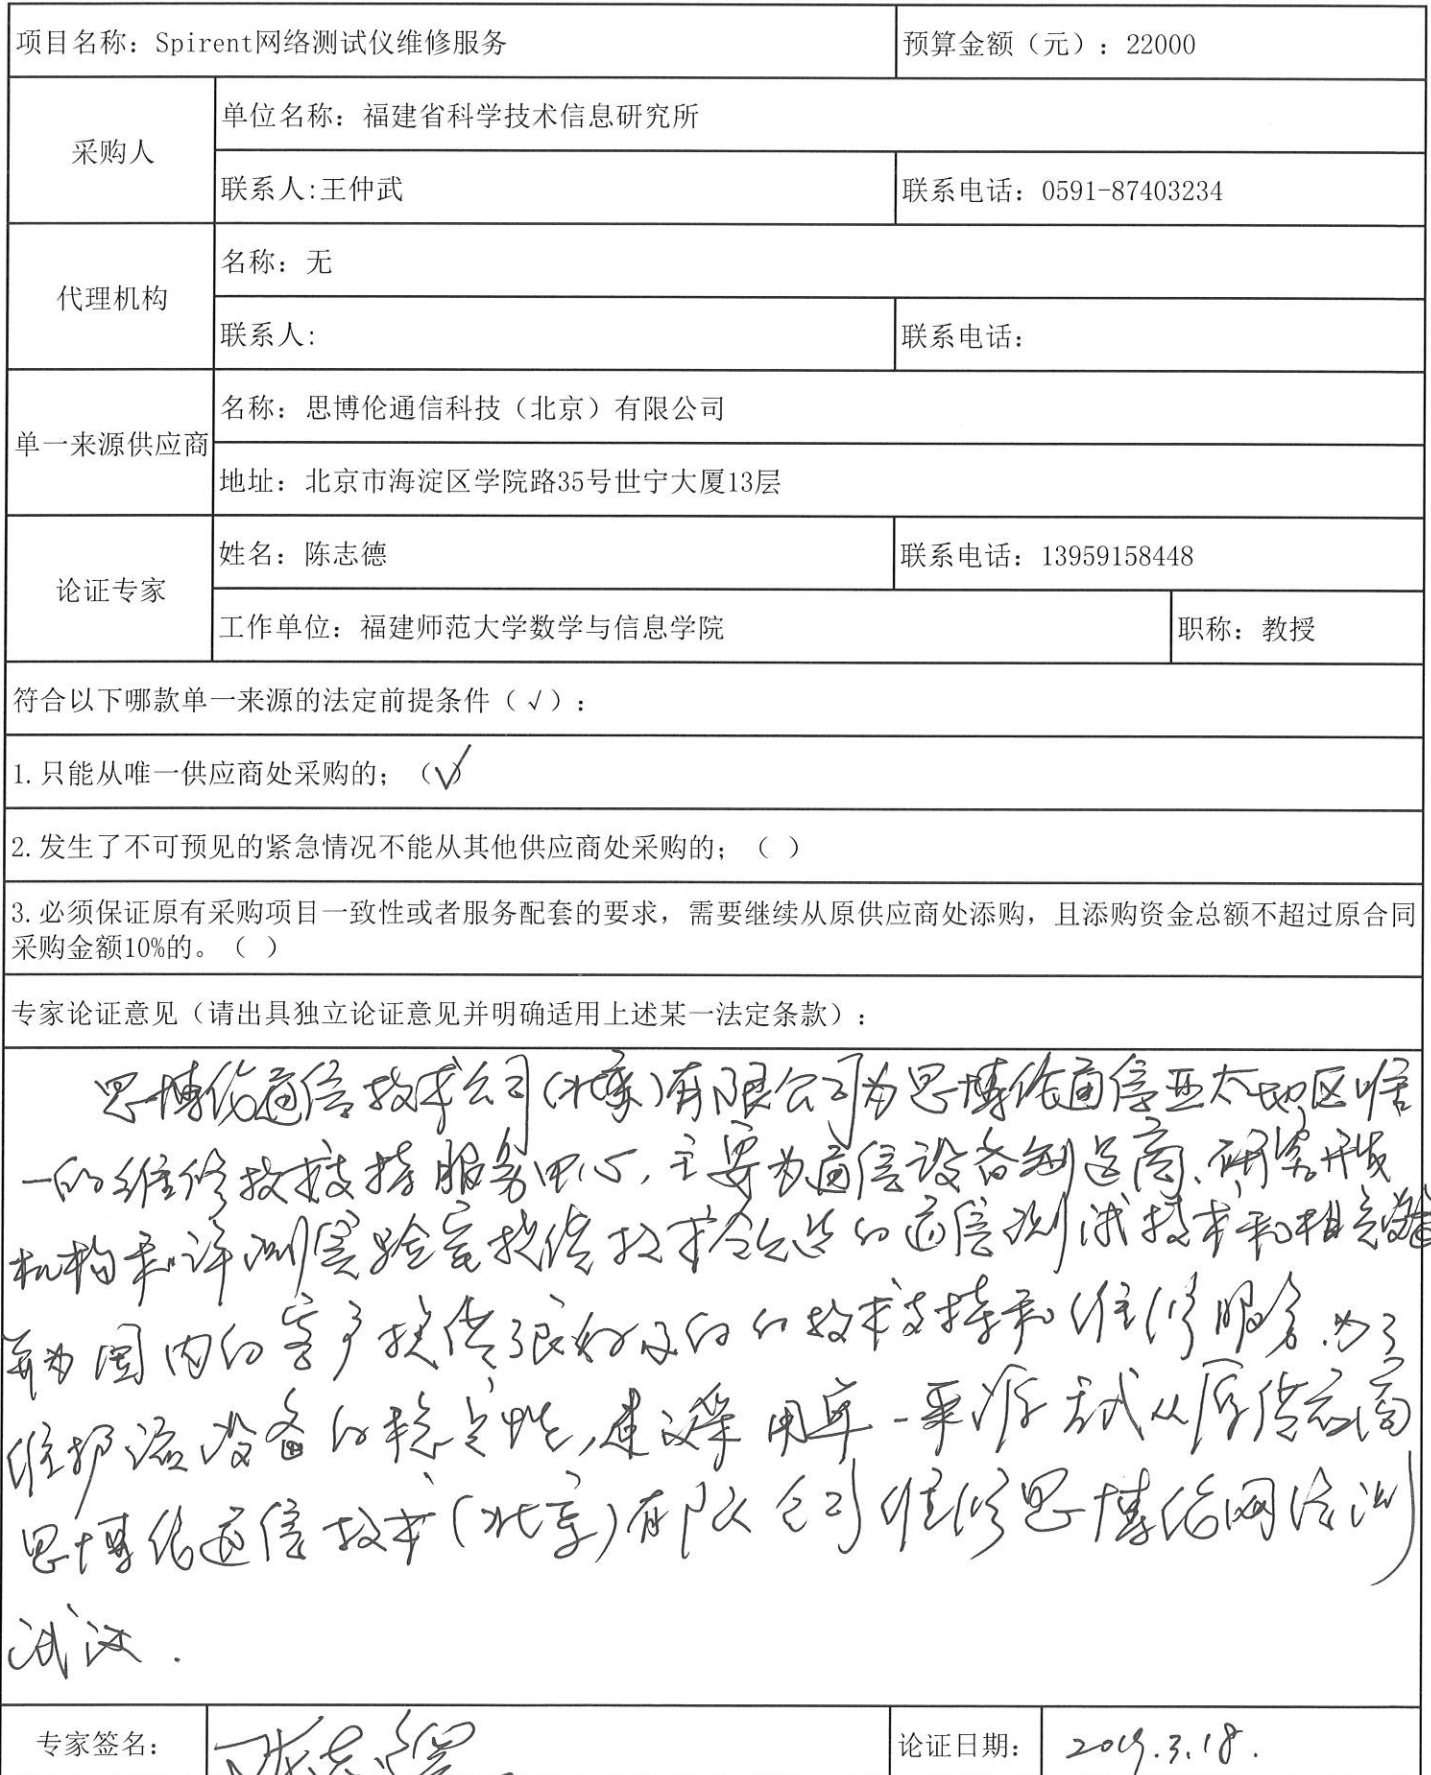 项目名称：Spirent网络测试仪维修服务
预算金额（元）：22000
采购人
单位名称：福建省科学技术信息研究所
联系人:王仲武
联系电话：0591-87403234
代理机构
名称：无
联系人:
联系电话：
单一来源供应商
名称：思博伦通信科技（北京）有限公司
地址：北京市海淀区学院路35号世宁大厦13层
论证专家
姓名：陈志德
联系电话：13959158448
工作单位：福建师范大学数学与信息学院
职称：教授
符合以下哪款单一来源的法定前提条件（√）：
1.只能从唯一供应商处采购的；（√）
2.发生了不可预见的紧急情况不能从其他供应商处采购的；（ ）
3.必须保证原有采购项目一致性或者服务配套的要求，需要继续从原供应商处添购，且添购资金总额不超过原合同
采购金额10%的。（ ）
专家论证意见（请出具独立论证意见并明确适用上述某一法定条款）：
思博伦通信技术公司(北京)有限公司为思博伦通信亚太地区唯
一的维修技术支持服务中心,主要为通信设备制造商、研究开发
机构和评测实验室提供技术领先的通信测试技术和相关
并为国内的客户提供良好及时的技术支持和维修服务.为了
维护该设备的稳定性,建议采用单一来源方式从原供应商
思博伦通信技术(北京)有限公司维修思博伦网络测
试仪.
专家签名：
陈志德
论证日期：
2019.3.18.